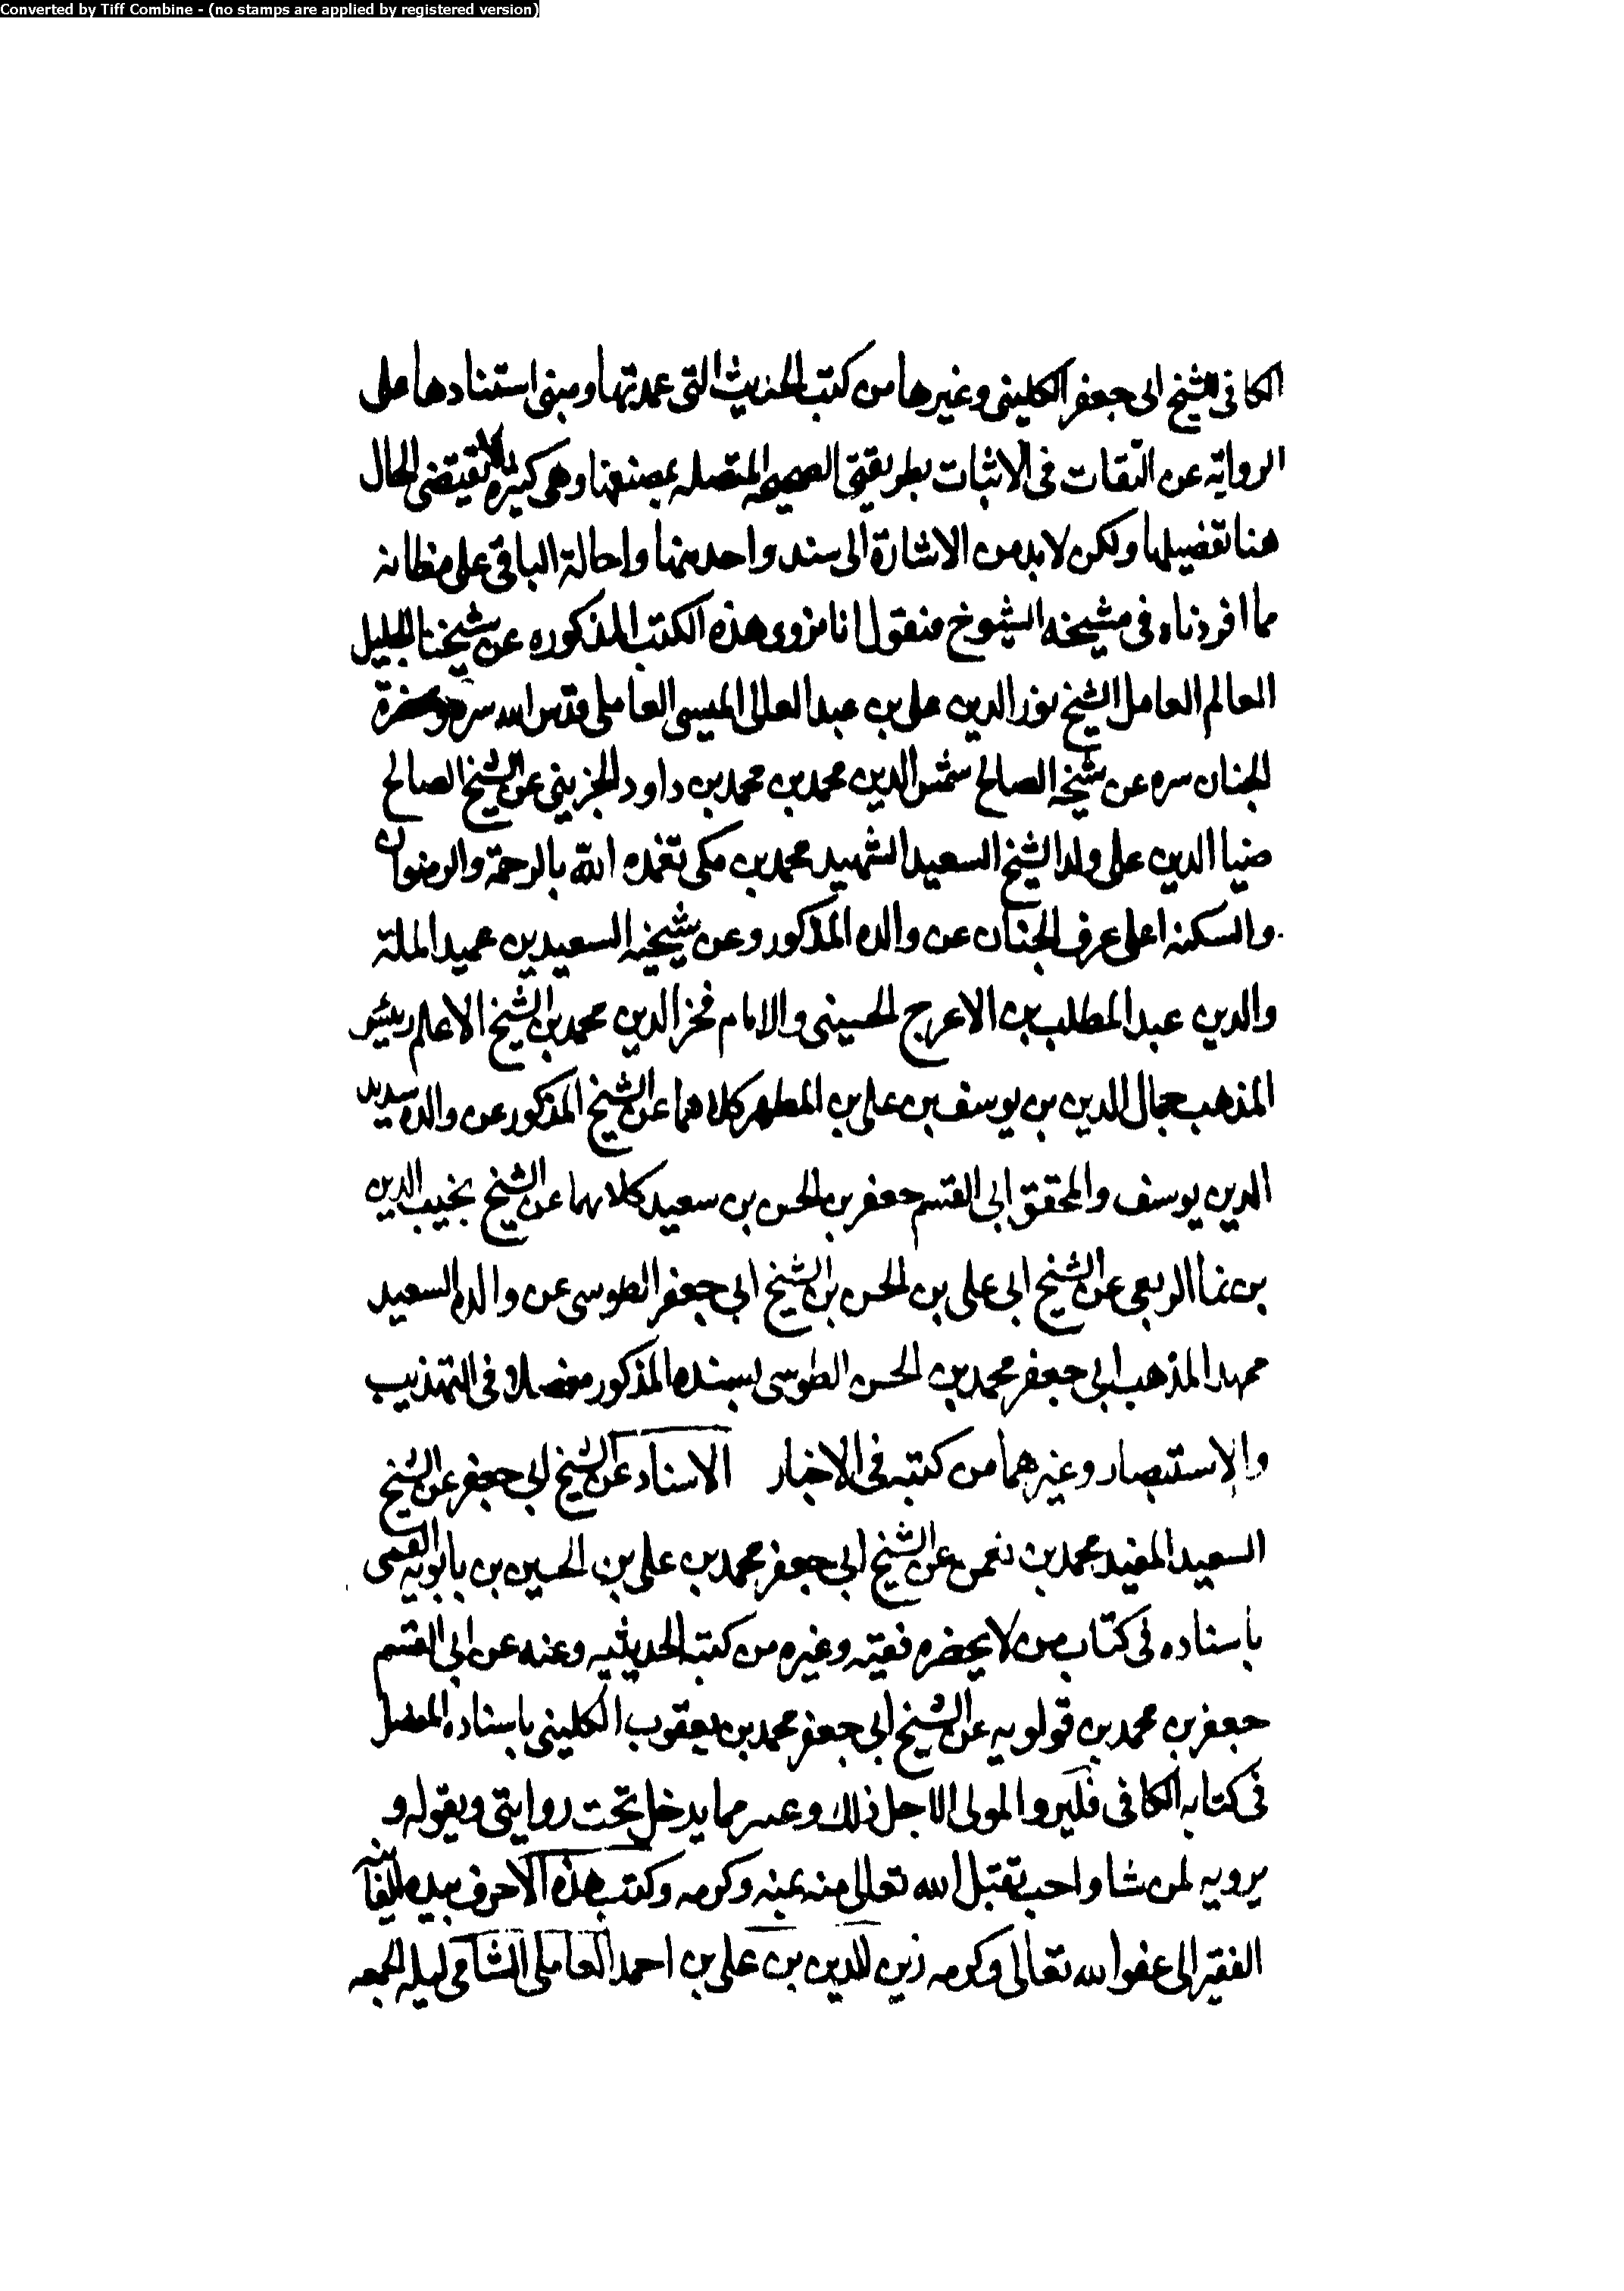 Converted by Tiff Combine - (no stamps are applied by registered version)
الكافى للشيخ ابى جعفر الكلينى وغيرها من كتب الحديث التى عمدتها ومبنى استنادها على
الرواية عن الثقات فى الاثبات بطريقتى الصحيحه المتصله بمصنفها وهى كثيره لا تقيتضى الحال
هنا تفضيلها ولكن لابد من الاشارة الى سند واحد منها واحالة الباقى على مظانه
مما افردناه فى مشيخه الشيوخ فنقول انا نروى هذه الكتب المذكوره عن شيخنا الجليل
العالم العامل الشيخ نور الدين على بن عبد العالى الميسى العاملى قدس الله سره
الجنان سره عن شيخه الصالح شمس الدين محمد بن محمد بن داود الجزينى عن الشيخ الصالح
ضيا الدين على ولد الشيخ السعيد الشهيد محمد بن مكى تغمده الله بالرحمة والرضوان
واسكنه اعلى غرف الجنان عن والده المذكور وعن شيخيه السعيدين عميد الملة
والدين عبد المطلب بن الاعرج الحسينى والامام فخر الدين محمد بن الشيخ الاعلم رئيس
المذهب جمال الدين بن يوسف بن على بن المطهر كلاهما عن الشيخ المذكور عن والده سديد
الدين يوسف والمحقق ابى القسم جعفر بن الحسن بن سعيد كلاهما عن الشيخ نجيب الدين
بن نما الربعى عن الشيخ ابى على بن الحسن بن الشيخ ابى جعفر الطوسى عن والده السعيد
ممهد المذهب ابى جعفر محمد بن الحسن الطوسى بسنده المذكور مفصلا فى التهذيب
والاستبصار وغيرهما من كتبه فى الاخبار الاسناد عن الشيخ ابى جعفر عن الشيخ
السعيد المفيد محمد بن نعمن عن الشيخ ابى جعفر محمد بن على بن الحسين بن بابويه القمى
باسناده فى كتاب من لا يحضره فقيه وغيره من كتبه الحديثيه وعنه عن ابى القسم
جعفر بن محمد بن قولويه عن الشيخ ابى جعفر محمد بن يعقوب الكلينى باسناده المفصل
فى كتابه الكافى فليرو المولى الاجل ذلك وغيره مما يدخل تحت روايتى ويقوله و
يرويه لمن شا واحب تقبل الله تعالى منه بمنه وكرمه وكتب هذه الاحرف بيده الفانيه
الفقير الى عفو الله تعالى وكرمه زين الدين بن على بن احمد العاملى الشامى ليله الجمعه